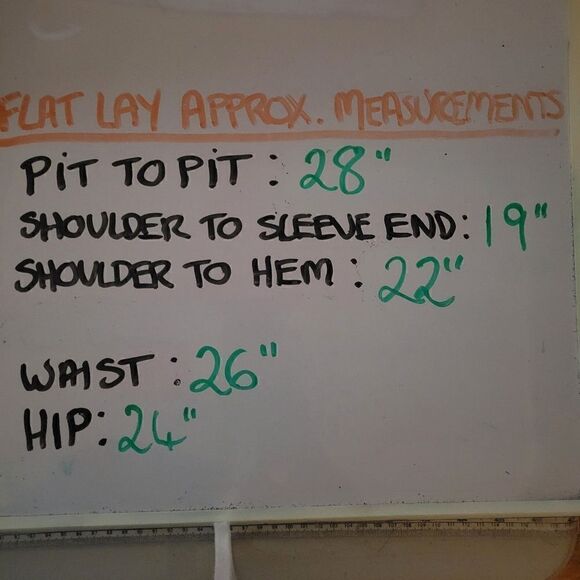 FLAT LAY APPROX. MEASUREMENTS
PIT TO PIT: 28"
SHOULDER TO SLEEVE END: 19"
SHOULDER TO HEM: 22"
WAIST: 26"
HIP: 24"